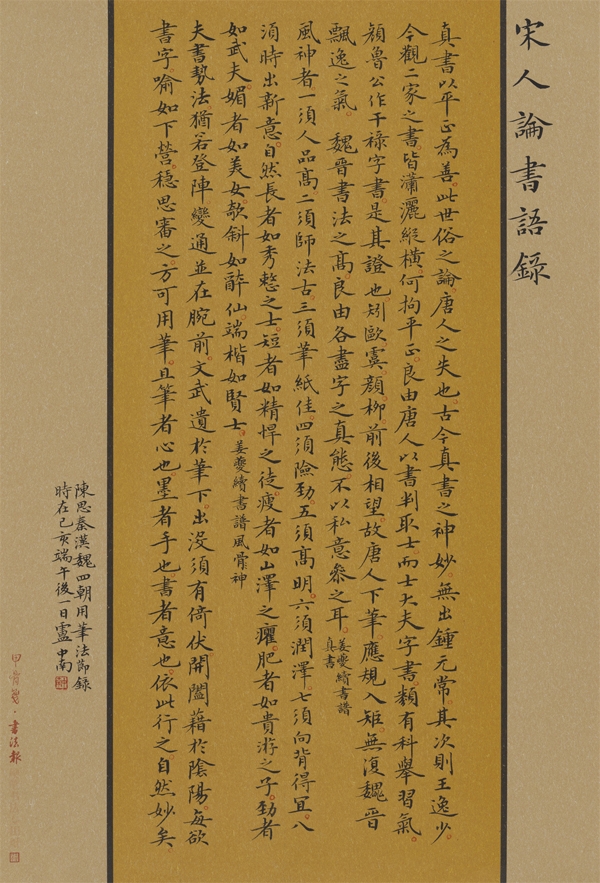 宋人論書語錄
真書以平正為善此世俗之論唐人之失也古今真書之神妙無出鍾元常其次則王逸少
今觀二家之書皆瀟灑縱橫何拘平正良由唐人以書判取士而士大夫字書類有科舉習氣
顏魯公作干祿字書是其證也矧歐虞顏柳前後相望故唐人下筆應規入矩無復魏晉
飄逸之氣 魏晉書法之高良由各盡字之真態不以私意參之耳 姜夔續書譜真書
風神者一須人品高二須師法古三須筆紙佳四須險勁五須高明六須潤澤七須向背得宜八
須時出新意自然長者如秀整之士短者如精悍之徒瘦者如山澤之癯肥者如貴游之子勁者
如武夫媚者如美女欹斜如醉仙端楷如賢士 姜夔續書譜風骨神
夫書勢法猶若登陣變通並在腕前文武遺於筆下出沒須有倚伏開闔藉於陰陽每欲
書字喻如下營穩思審之方可用筆且筆者心也墨者手也書者意也依此行之自然妙矣
陳思秦漢魏四朝用筆法節錄
時在己亥端午後一日盧中南
書法報